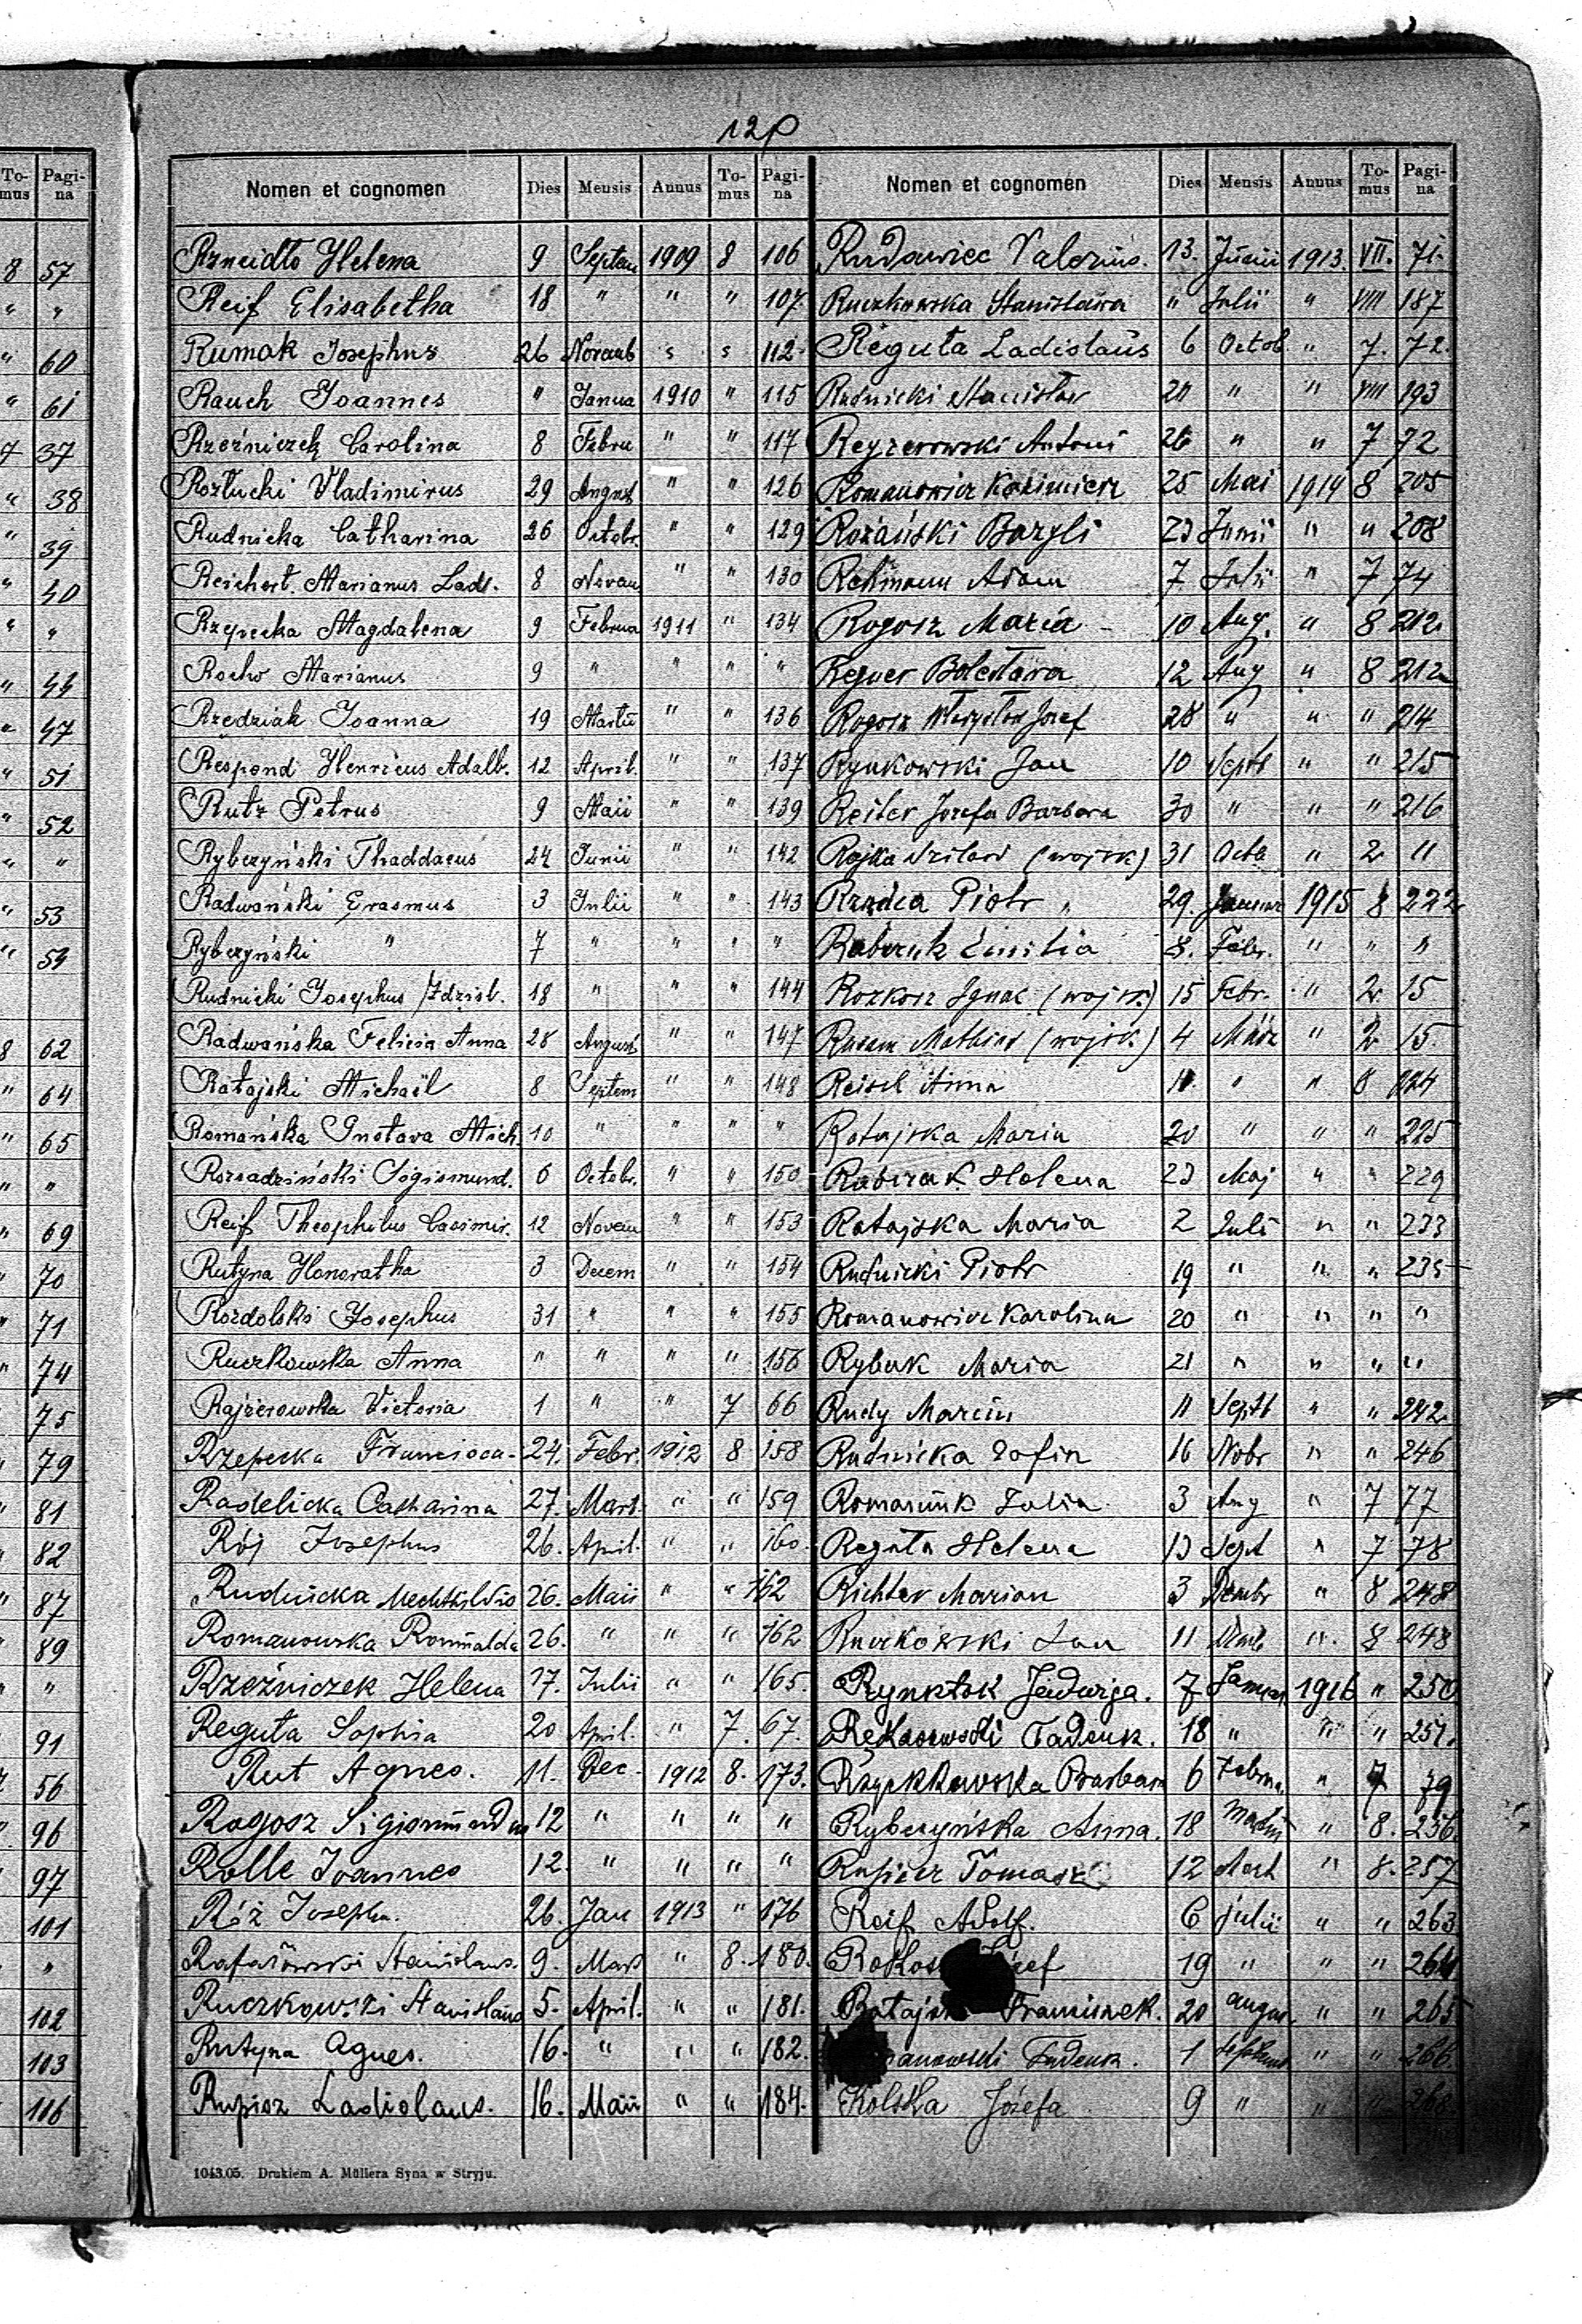 12p
To-mus Pagi-na
8 57
" "
" 60
" 61
7 37
" 38
" 39
" 40
" "
" 44
" 47
" 51
" 52
" "
" 53
" 59
8 62
" 64
" 65
" "
" 69
" 70
" 71
" 74
" 75
" 79
" 81
" 82
" 87
" 89
" "
91
56
96
97
101
"
102
103
106
Nomen et cognomen Dies Mensis Annus To-mus Pagi-na
Helena 9 Septem 1909 8 106
Reif Elisabetha 18 " " " 107.
Rumak Josephus 26 Novemb s s 112.
Rauch Joannes " Janua 1910 " 115
Rzeźniczek Carolina 8 Febru " " 117
Rozłucki Vladimirus 29 August " " 126
Rudnicka Catharina 26 Octobr. " " 129
Reichert Marianus Ladl. 8 Novem " " 130
Rzepecka Magdalena 9 Februa 1911 " 134
Rocho Marianus 9 " " " "
Rzedziak Joanna 19 Martii " " 136
Respond Henricus Adalb. 12 April. " " 137
Rutz Petrus 9 Maii " " 139
Rybczyński Thaddaeus 24 Junii " " 142
Radwański Erasmus 3 Julii " " 143
Rybczyński " 7 " " " "
Rudnicki Josephus Zdzisł. 18 " " " 144
Radwańska Felicia Anna 28 August " " 147
Ratajski Michaël 8 Septem " " 148
Romańska Gustava Mich. 10 " " " "
Rozsadziński Sigismund. 6 Octobr. " " 150
Reif Theophilus Casimir. 12 Novem " " 153
Rutyna Honoratha 3 Decem " " 154
Rozdolski Josephus 31 " " " 155
Ruczkowska Anna " " " " 156
Rajzerowska Victoria 1 " " 7 66
Rzepecka Francisca 24. Febr. 1912 8 158
Radelicka Catharina 27. Mart. " " 159
Rój Josephus 26. April. " " 160.
Rudnicka 26. Maii " " 162
Romanowska Romualda 26. " " " 162
Rzeźniczek Helena 17. Julii " " 165.
Reguta Sophia 20 April. " 7. 67.
Rut Agnes. 11. Dec. 1912 8. 173.
Rogosz Sigismundus 12 " " " "
Rolle Joannes 12. " " " "
Róż Josepha. 26. Jan 1913 " 176
Stanislaus. 9. Mart " 8. 180.
Ruczkowski Stanislaus 5. April. " " 181.
Rutyna Agnes. 16. " " " 182.
Rupisz Ladislaus. 16. Maii " " 184.
Nomen et cognomen Dies Mensis Annus To-mus Pagi-na
Rudawiec Valerius. 13. Junii 1913. VII. 71.
Ruczkowska Stanisława " Julii " VIII 187
Reguta Ladislaus 6 Octob " 7. 72.
Rudnicki Stanisław 20 " " VIII 193
Reyzerowski Antoni 26 " " 7 72
Romanowicz Kazimierz 25 Mai 1914 8 205
Rożański Bazyli 23 Junii " " 208
Adam 7 Julii " 7 74
Rogosz Maria 10 Aug. " 8 212.
Regner 12 Aug " 8 212
Rogosz Józef 28 " " " 214
Rynkowski Jan 10 Septb " " 215
Reiter Józefa Barbara 30 " " " 216
Rojka (wojsk) 31 Octb " 2 11
Piotr 29. Januar 1915 8 222
Emilia 8. Febr. " " "
Rozkosz Ignac (wojsk.) 15 Febr. " 2 15
(wojsk) 4 März " 2 15.
Reisel Anna 11. " " 8 224
Ratajska Maria 20 " " " 225
Helena 23 Maj " " 229
Ratajska Maria 2 Juli " " 233
Rudnicki Piotr 19 " " " 235
Romanowicz Karolina 20 " " " "
Rybak Maria 21 " " " "
Rudy Marcin 11 Septb " " 242.
Rudnicka Zofia 16 Nobr " " 246
Romaniuk Julia 3 Aug " 7 77
Reguta Helena 13 Sept " 7 78
Richter Marian 3 Dembr " 8 248
Ruczkowski Jan 11 Demb " 8 248
Jadwiga. 7 Januar 1916 " 250
Tadeusz. 18 " " " 251.
Barbara 6 Februa. " 7 79
Rybczyńska Anna. 18 Martii " 8. 256.
Rupisz Tomasz 12 Mart " 8. 257
Reif Adolf. 6 julii " " 263
19 " " " 264
Franciszek. 20 august " " 265
Tadeusz. 1 " " 266
Rolska Józefa 9 " " " 268
1043.05. Drukiem A. Müllera Syna w Stryju.